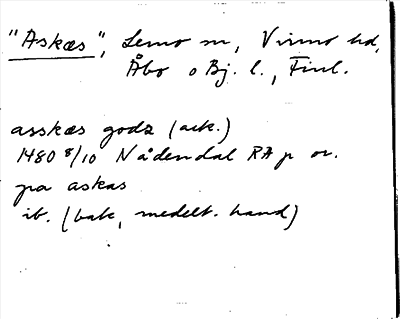 "Askæs", Lemo sn, Virmo hd,
Åbo o Bj. l., Finl.
asskæs godz (ack.)
1480 8/10 Nådendal RA p or.
pa askas
ib. (bak, medelt. hand)